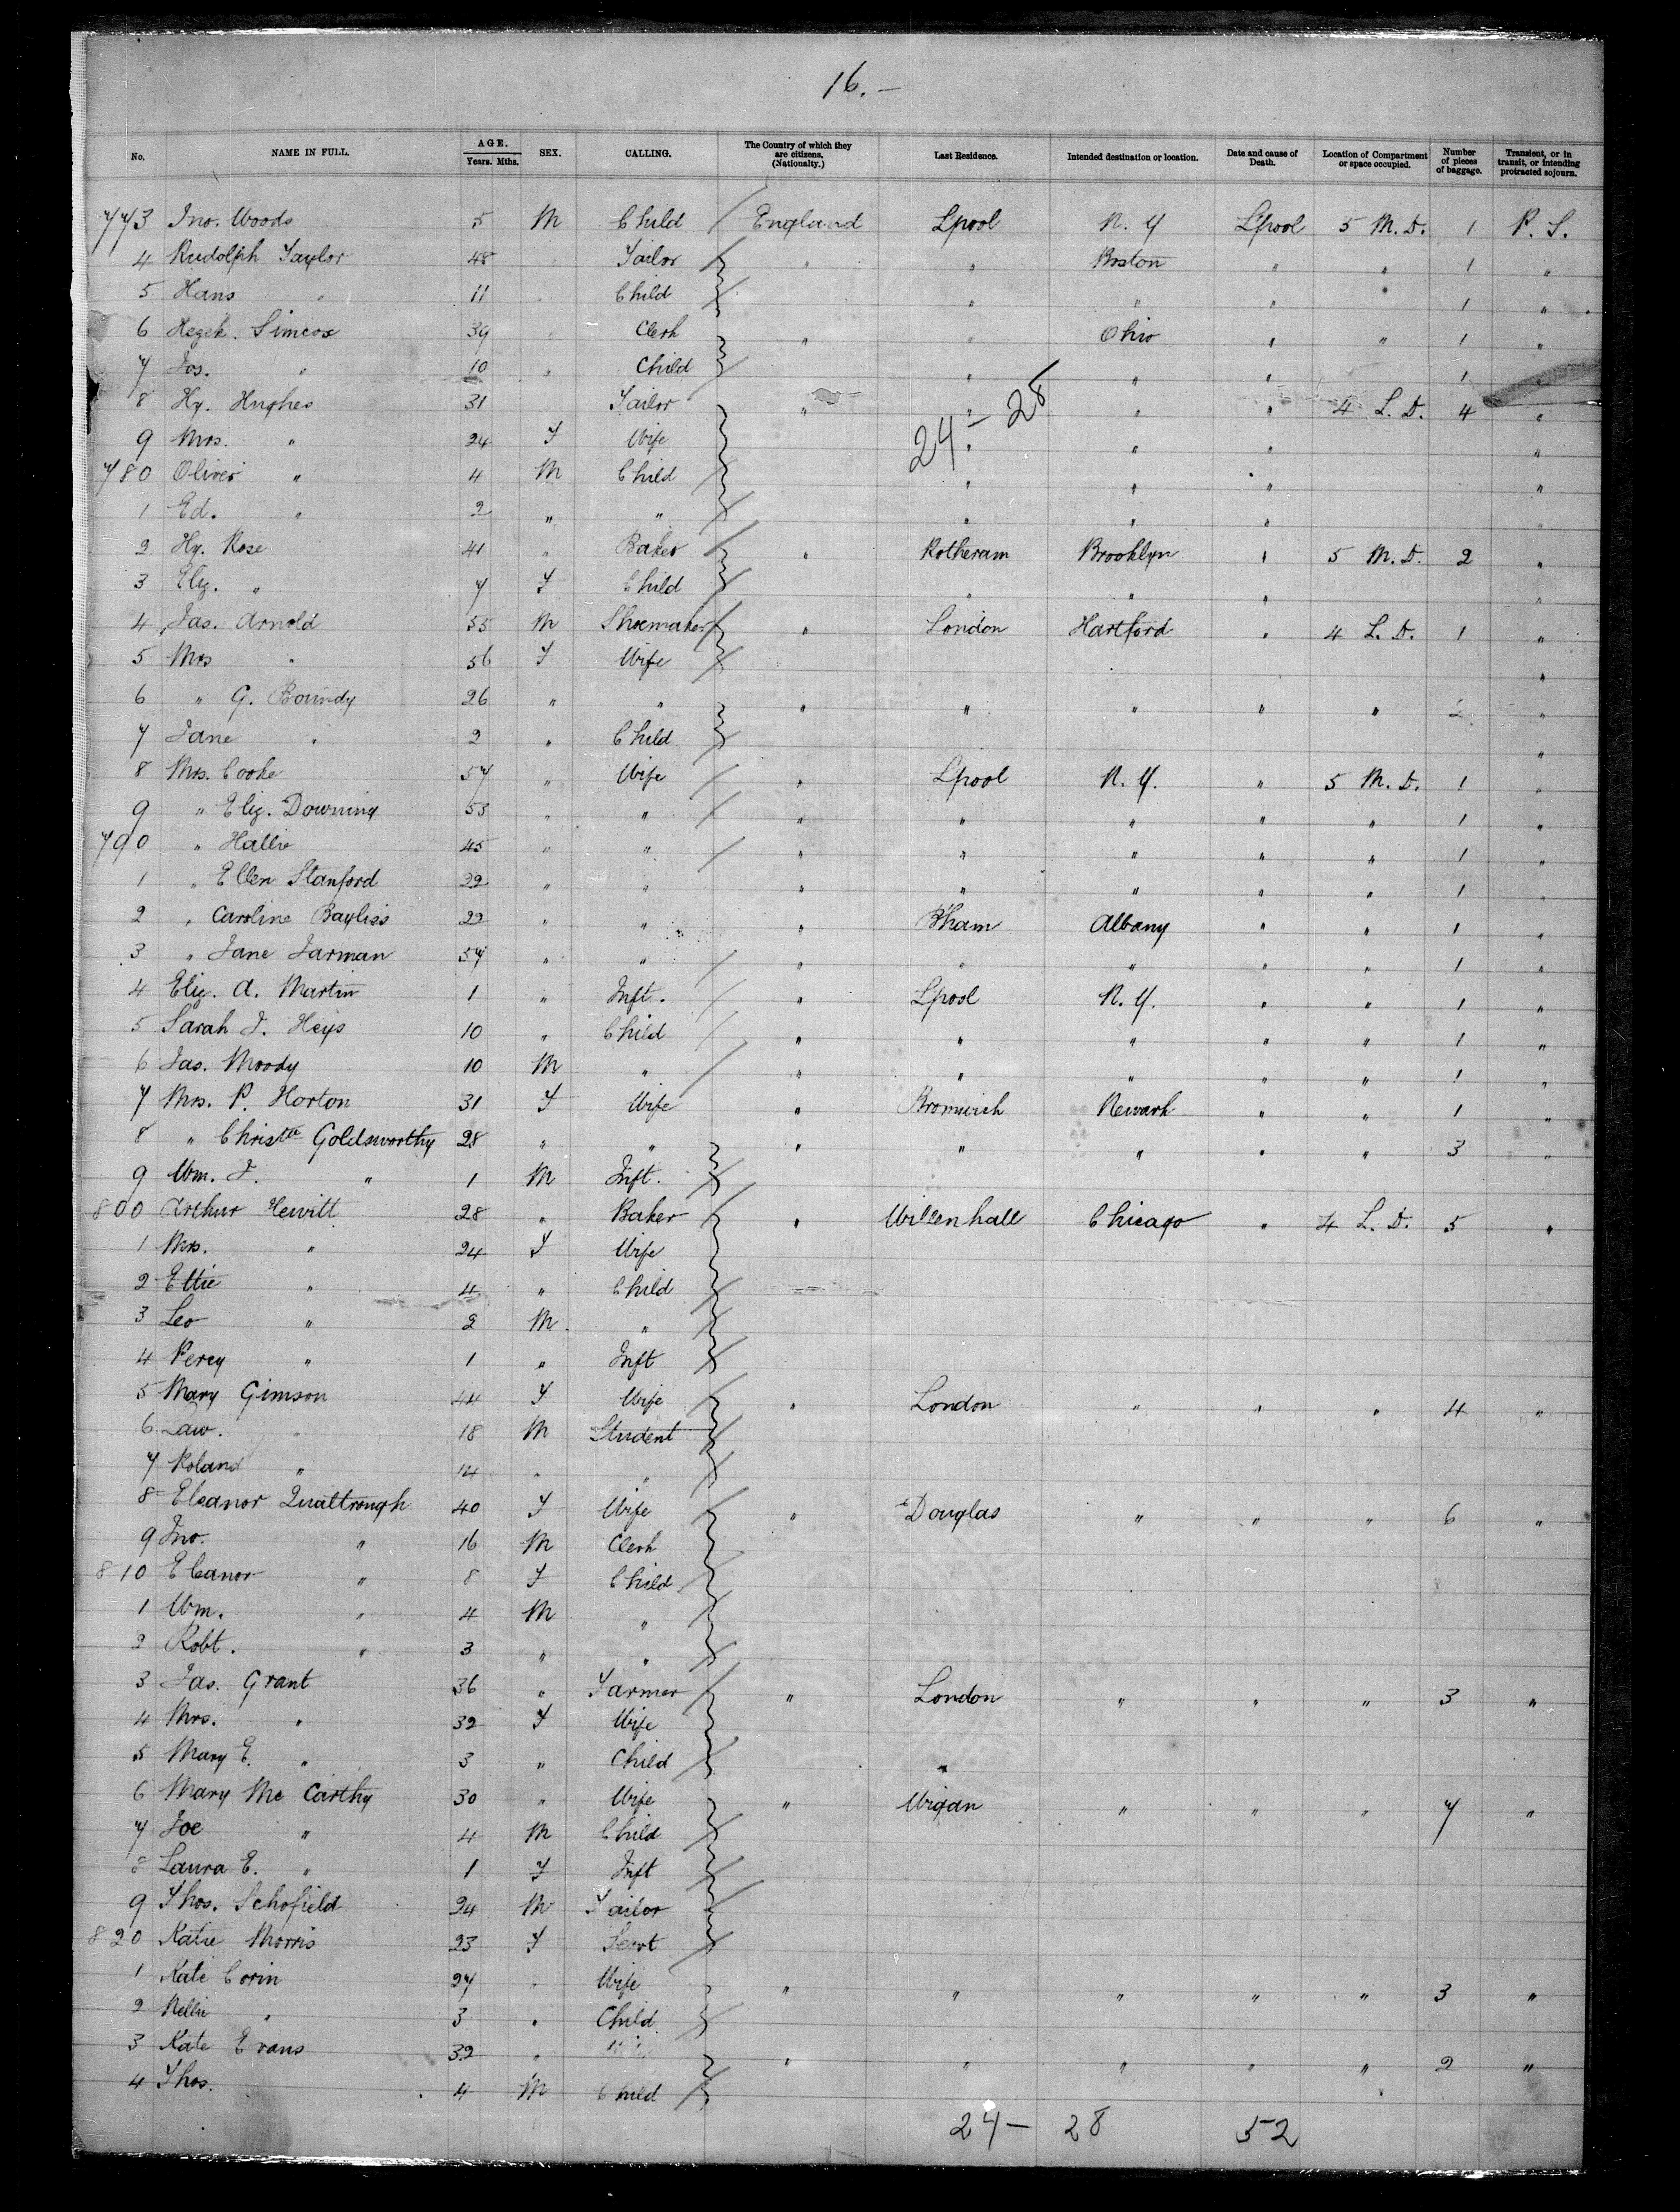 16. —
No. NAME IN FULL. AGE. Years. Mths. SEX. CALLING. The Country of which they are citizens. (Nationality.) Last Residence. Intended destination or location. Date and cause of Death. Location of Compartment or space occupied. Number of pieces of baggage. Transient, or in transit, or intending protracted sojourn.
773 Jno. Woods 5 M Child England Lpool N. Y Lpool 5 M. D. 1 P. S.
4 Rudolph Taylor 48 Tailor " " Boston " " 1 "
5 Hans " 11 Child " " " " 1 "
6 Hezek. Simcox 39 Clerk " " Ohio " " 1 "
7 Jos. " 10 " Child " " " 1 "
8 Hy. Hughes 31 Tailor " " " " 4 L. D. 4 "
24 - 28
9 Mrs. " 24 F Wife " " " "
780 Oliver " 4 M Child " " " "
1 Ed. " 2 " " " " "
2 Hy. Rose 41 " Baker " Rotheram Brooklyn " 5 M. D. 2 "
3 Eliz. " 7 F Child " " " "
4 Jas. Arnold 55 M Shoemaker " London Hartford " 4 L. D. 1 "
5 Mrs " 56 F Wife "
6 " G. Boundy 26 " " " " " " " 2 "
7 Jane " 2 " Child "
8 Mrs. Cooke 57 " Wife " Lpool N. Y. " 5 M. D. 1 "
9 " Eliz. Downing 53 " " " " " " " 1 "
790 " Hallie 45 " " " " " " " 1 "
1 " Ellen Stanford 29 " " " " " " " 1 "
2 " Caroline Bayliss 22 " " " B'ham Albany " " 1 "
3 " Jane Jarman 57 " " " " " " " 1 "
4 Eliz. A. Martin 1 " Inft. " Lpool N. Y. " " 1 "
5 Sarah J. Heys 10 " Child " " " " " 1 "
6 Jas. Moody 10 M " " " " " " 1 "
7 Mrs. P. Horton 31 F Wife " Bromwich Newark " " 1 "
8 " Christa Goldsworthy 28 " " " " " " " 3 "
9 Wm. J. " 1 M Inft.
800 Arthur Hewitt 28 " Baker " Willenhall Chicago " 4 L. D. 5 "
1 Mrs. " 24 F Wife
2 Ettie " 4 " Child
3 Leo " 2 M. "
4 Percy " 1 " Inft
5 Mary Gimson 44 F Wife " London " " " 4 "
6 Law. " 18 M Student
7 Roland " 14 " "
8 Eleanor Qualtrough 40 F Wife " Douglas " " " 6 "
9 Jno. " 16 M Clerk
810 Eleanor " 8 F Child
1 Wm. " 4 M "
2 Robt. " 3 " "
3 Jas. Grant 36 " Farmer " London " " " 3 "
4 Mrs. " 32 F Wife
5 Mary E. " 3 " Child
6 Mary Mc Carthy 30 " Wife " Wigan " " " 7 "
7 Joe " 4 M Child
8 Laura E. " 1 F Inft
9 Thos. Schofield 24 M Tailor
820 Katie Morris 23 F Servt
1 Kate Corin 27 " Wife " " " " " 3 "
2 Nellie " 3 " Child
3 Kate Evans 32 " " " " " " 2 "
4 Thos. 4 M Child
24 — 28 52